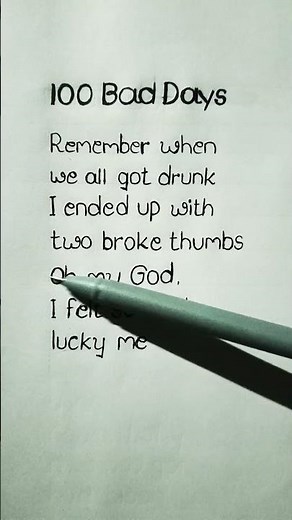 100 Bad Days
Remember when
we all got drunk
I ended up with
two broke thumbs
Oh my God,
I felt
lucky me